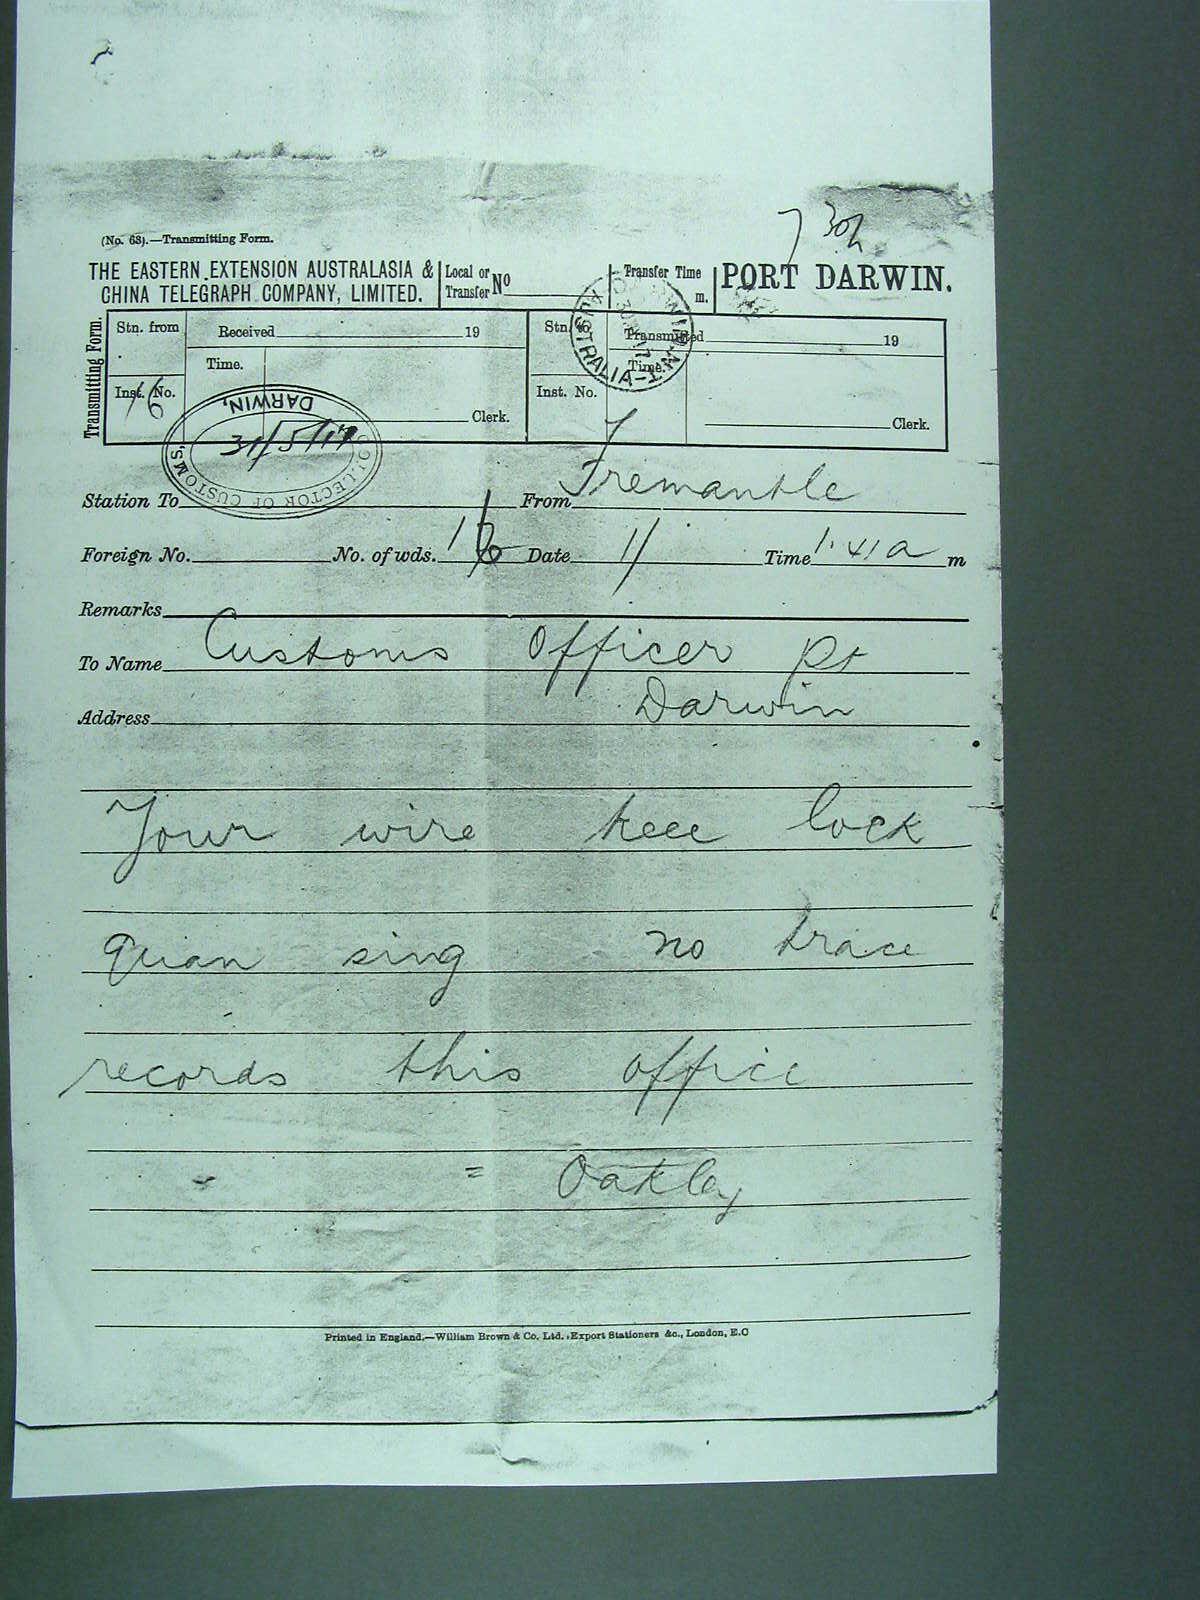 (No. 63).—Transmitting Form.
7 30
THE EASTERN EXTENSION AUSTRALASIA & CHINA TELEGRAPH COMPANY, LIMITED.
Local or Transfer No
Transfer Time m.
PORT DARWIN.
Transmitting Form.
Stn. from
Received 19
Stn. to
Transmitted 19
Time.
Time.
Inst. No. 16
Clerk.
Inst. No.
Clerk.
COLLECTOR OF CUSTOMS, DARWIN,
31/5/17
AUSTRALIA-N.T
Station To From Fremantle
Foreign No. No. of wds. 16 Date 11 Time 1.41 a m
Remarks
To Name Customs Officer Pt
Address Darwin
Your wire keee lock
quan sing no trace
records this office
= Oakley
Printed in England.—William Brown & Co. Ltd. Export Stationers &c., London, E.C